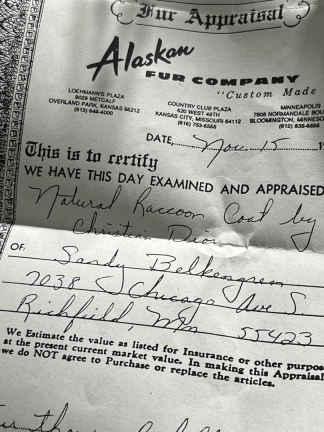 Fur Appraisal
Alaskan
FUR COMPANY
"Custom Made
LOEHMANN'S PLAZA
9029 METCALF
OVERLAND PARK, KANSAS 66212
(913) 648-4000
COUNTRY CLUB PLAZA
420 WEST 48TH
KANSAS CITY, MISSOURI 64112
(816) 753-6588
MINNEAPOLIS
7808 NORMANDALE BOU
BLOOMINGTON, MINNESO
(612) 835-6868
DATE, Nov. 15, 1
This is to certify
WE HAVE THIS DAY EXAMINED AND APPRAISED
Natural Raccoon Coat by
Christian Dior
OF: Sandy Belkengren
7038 Chicago Ave S.
Richfield, Mn 55423
We Estimate the value as listed for Insurance or other purpos
at the present current market value. In making this Appraisal
we do NOT agree to Purchase or replace the articles.